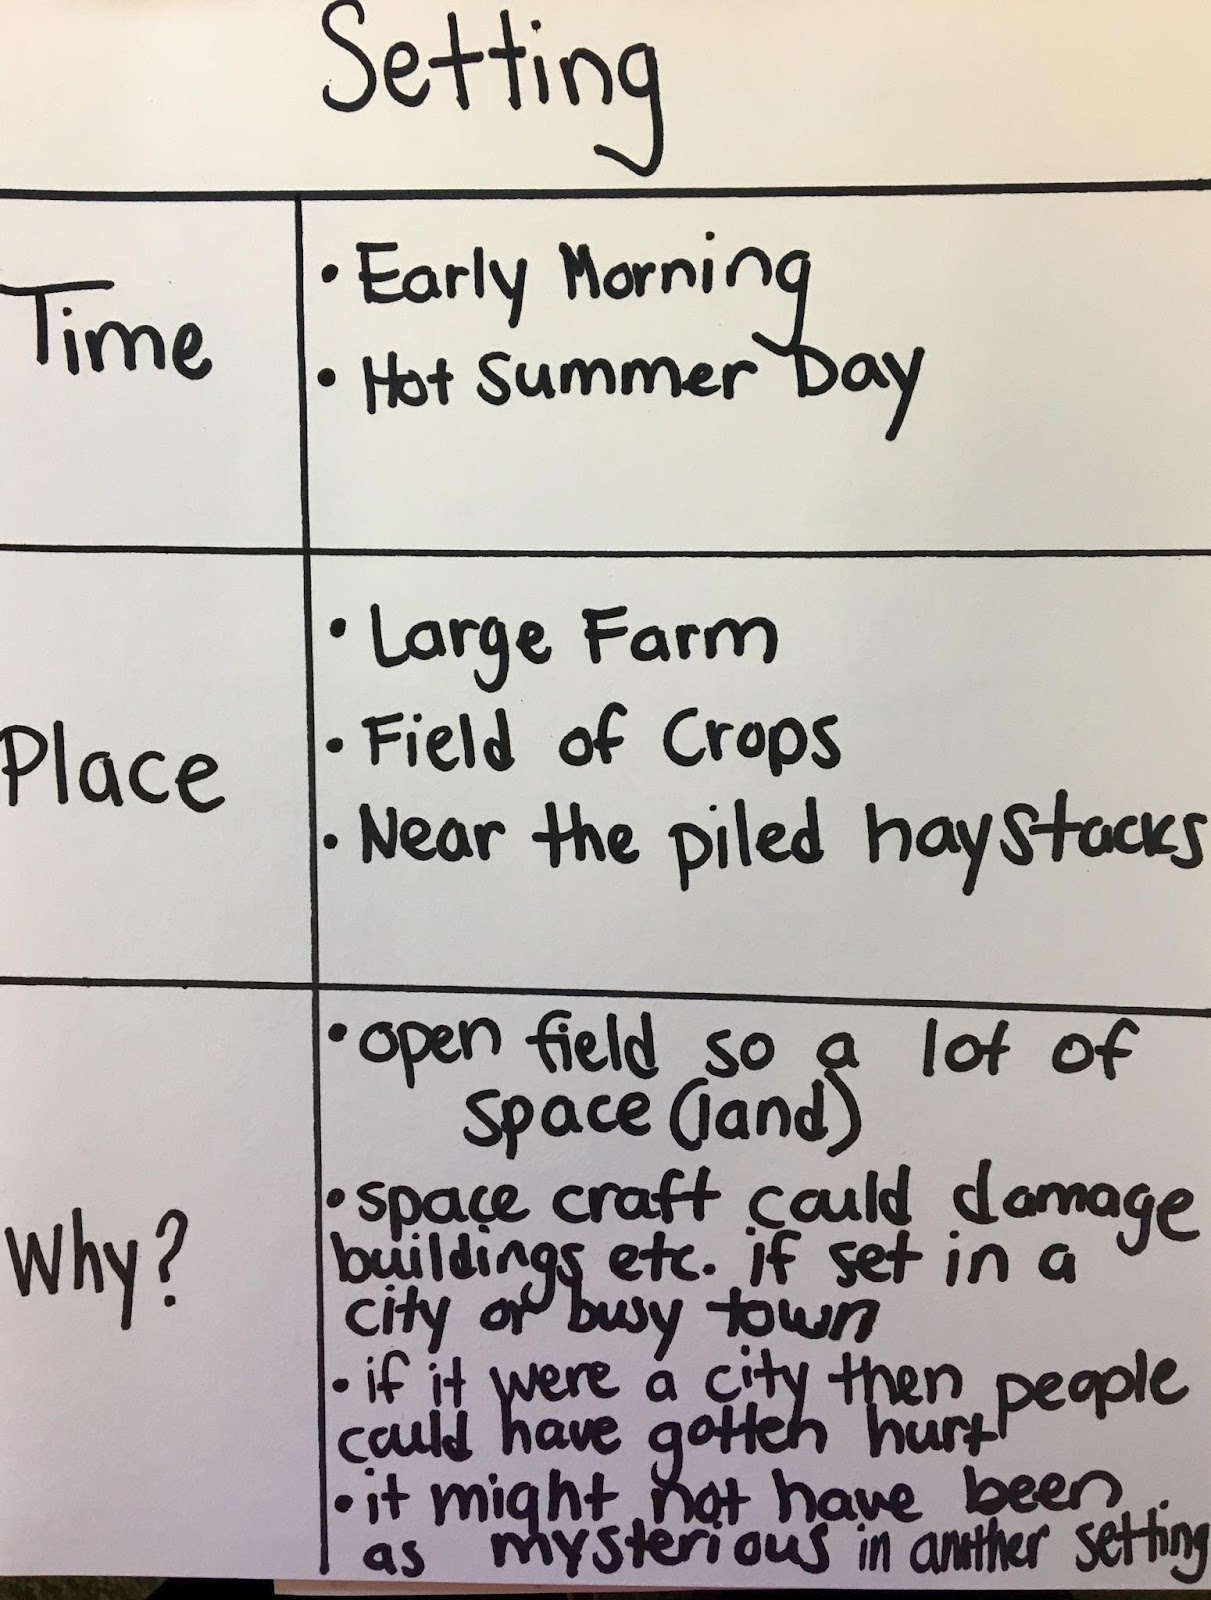 Setting
Time
• Early Morning
• Hot Summer Day
Place
• Large Farm
• Field of Crops
• Near the piled haystacks
Why?
• open field so a lot of
space (land)
• space craft could damage
buildings etc. if set in a
city or busy town
• if it were a city then people
could have gotten hurt
• it might not have been
as mysterious in another setting